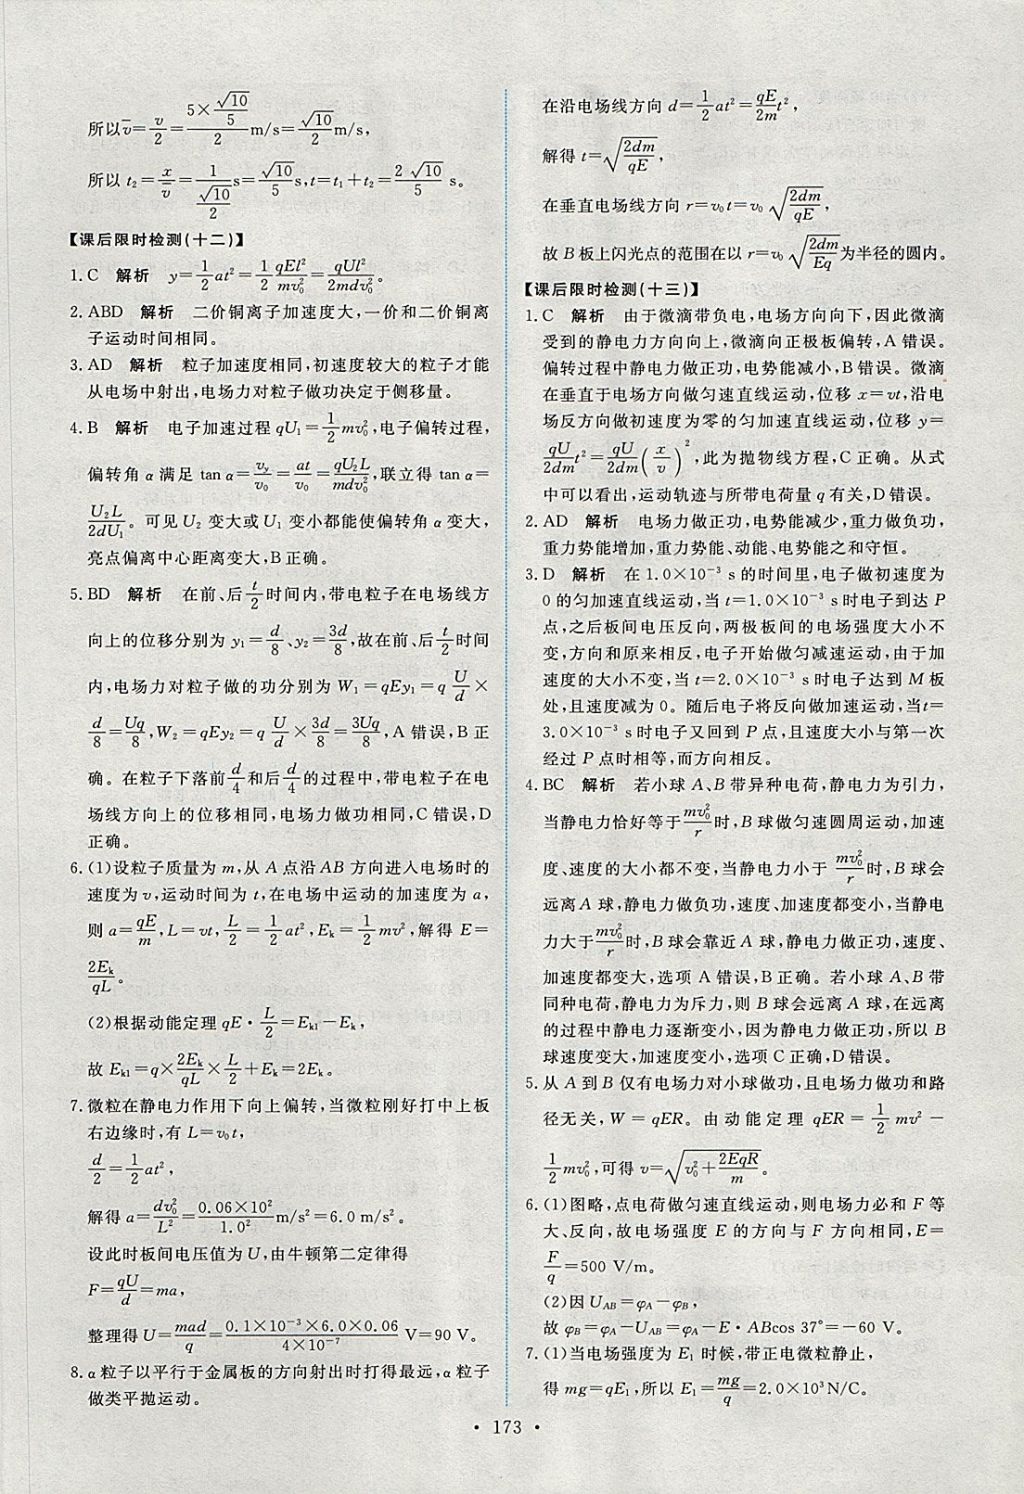 所以v̄=v/2=(5×√10/5)/2 m/s=√10/2 m/s,
所以 t₂=x/v̄=1/(√10/2) s=√10/5 s,t=t₁+t₂=2√10/5 s。
【课后限时检测(十二)】
1. C 解析 y=1/2 at²=1/2 qEl²/mv₀²=qUl²/2mdv₀²。
2. ABD 解析 二价铜离子加速度大,一价和二价铜离
子运动时间相同。
3. AD 解析 粒子加速度相同,初速度较大的粒子才能
从电场中射出,电场力对粒子做功决定于侧移量。
4. B 解析 电子加速过程 qU₁=1/2 mv₀²,电子偏转过程,
偏转角 α 满足 tan α=v_y/v₀=at/v₀=qU₂L/mdv₀²,联立得 tan α=
U₂L/2dU₁。可见 U₂ 变大或 U₁ 变小都能使偏转角 α 变大,
亮点偏离中心距离变大,B 正确。
5. BD 解析 在前、后 t/2 时间内,带电粒子在电场线方
向上的位移分别为 y₁=d/8、y₂=3d/8,故在前、后 t/2 时间
内,电场力对粒子做的功分别为 W₁=qEy₁=q U/d×
d/8=Uq/8,W₂=qEy₂=q U/d×3d/8=3Uq/8,A 错误,B 正
确。在粒子下落前 d/4 和后 d/4 的过程中,带电粒子在电
场线方向上的位移相同,电场力做功相同,C 错误,D
正确。
6. (1)设粒子质量为 m,从 A 点沿 AB 方向进入电场时的
速度为 v,运动时间为 t,在电场中运动的加速度为 a,
则 a=qE/m,L=vt,L/2=1/2 at²,Eₖ=1/2 mv²,解得 E=
2Eₖ/qL。
(2)根据动能定理 qE·L/2=Eₖ₁-Eₖ,
故 Eₖ₁=q×2Eₖ/qL×L/2+Eₖ=2Eₖ。
7. 微粒在静电力作用下向上偏转,当微粒刚好打中上板
右边缘时,有 L=v₀t,
d/2=1/2 at²,
解得 a=dv₀²/L²=0.06×10²/1.0² m/s²=6.0 m/s²。
设此时板间电压值为 U,由牛顿第二定律得
F=qU/d=ma,
整理得 U=mad/q=0.1×10⁻³×6.0×0.06/4×10⁻⁷ V=90 V。
8. α 粒子以平行于金属板的方向射出时打得最远,α 粒子
做类平抛运动。
在沿电场线方向 d=1/2 at²=qE/2m t²,
解得 t=√(2dm/qE),
在垂直电场线方向 r=v₀t=v₀√(2dm/qE),
故 B 板上闪光点的范围在以 r=v₀√(2dm/Eq)为半径的圆内。
【课后限时检测(十三)】
1. C 解析 由于微滴带负电,电场方向向下,因此微滴
受到的静电力方向向上,微滴向正极板偏转,A 错误。
偏转过程中静电力做正功,电势能减小,B 错误。微滴
在垂直于电场方向做匀速直线运动,位移 x=vt,沿电
场反方向做初速度为零的匀加速直线运动,位移 y=
qU/2dm t²=qU/2dm (x/v)²,此为抛物线方程,C 正确。从式
中可以看出,运动轨迹与所带电荷量 q 有关,D 错误。
2. AD 解析 电场力做正功,电势能减少,重力做负功,
重力势能增加,重力势能、动能、电势能之和守恒。
3. D 解析 在 1.0×10⁻³ s 的时间里,电子做初速度为
0 的匀加速直线运动,当 t=1.0×10⁻³ s 时电子到达 P
点,之后板间电压反向,两极板间的电场强度大小不
变,方向和原来相反,电子开始做匀减速运动,由于加
速度的大小不变,当 t=2.0×10⁻³ s 时电子达到 M 板
处,且速度减为 0。随后电子将反向做加速运动,当 t=
3.0×10⁻³ s 时电子又回到 P 点,且速度大小与第一次
经过 P 点时相等,而方向相反。
4. BC 解析 若小球 A、B 带异种电荷,静电力为引力,
当静电力恰好等于 mv₀²/r 时,B 球做匀速圆周运动,加速
度、速度的大小都不变,当静电力小于 mv₀²/r 时,B 球会
远离 A 球,静电力做负功,速度、加速度都变小,当静电
力大于 mv₀²/r 时,B 球会靠近 A 球,静电力做正功,速度、
加速度都变大,选项 A 错误,B 正确。若小球 A、B 带
同种电荷,静电力为斥力,则 B 球会远离 A 球,在远离
的过程中静电力逐渐变小,因为静电力做正功,所以 B
球速度变大,加速度变小,选项 C 正确,D 错误。
5. 从 A 到 B 仅有电场力对小球做功,且电场力做功和路
径无关,W=qER。由动能定理 qER=1/2 mv²-
1/2 mv₀²,可得 v=√(v₀²+2EqR/m)。
6. (1)图略,点电荷做匀速直线运动,则电场力必和 F 等
大、反向,故电场强度 E 的方向与 F 方向相同,E=
F/q=500 V/m。
(2)因 U_AB=φ_A-φ_B,
故 φ_B=φ_A-U_AB=φ_A-E·ABcos 37°=-60 V。
7. (1)当电场强度为 E₁ 时候,带正电微粒静止,
得 mg=qE₁,所以 E₁=mg/q=2.0×10³N/C。
• 173 •